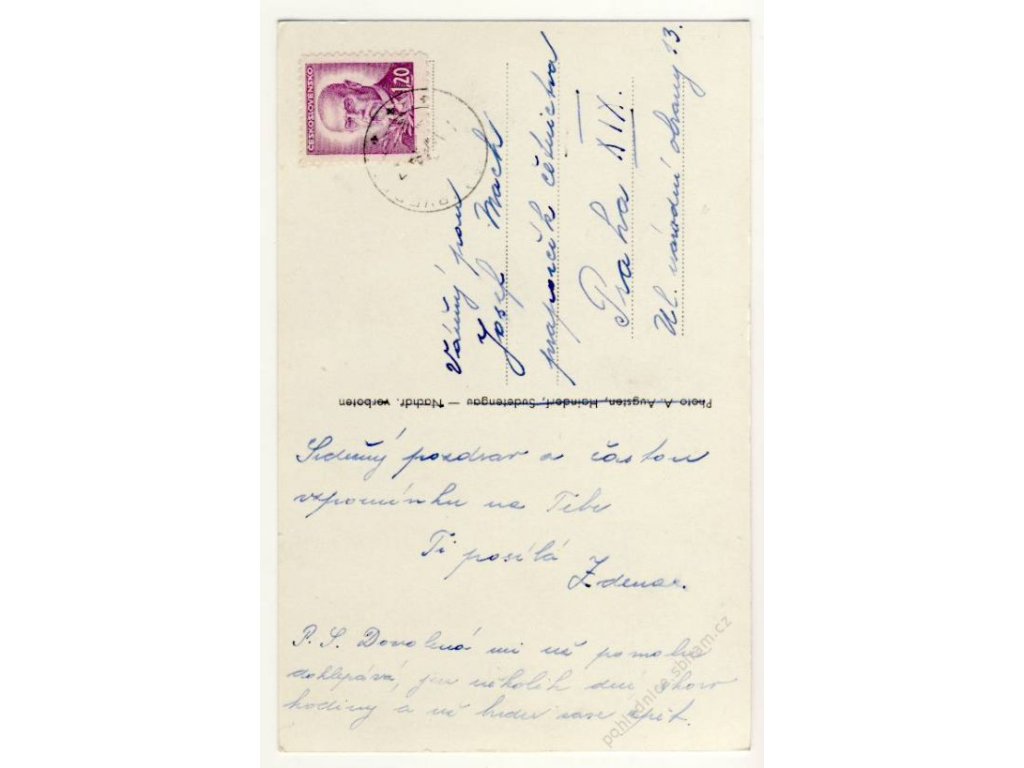 ČESKOSLOVENSKO
1,20
Vážený pan
Josef Mach
praporčík četnictva
Praha XIX.
Ul. národní obrany 13.
Photo A. Augsten, Haindorf, Sudetengau — Nachdr. verboten
Srdečný pozdrav a častou
vzpomínku na Tebe
Ti posílá
Zdena.
P. S. Dovolená mi už pomalu
doklepává, jen několik dní, skoro
hodiny a už budu zase zpět.
pohlednice.sbiram.cz